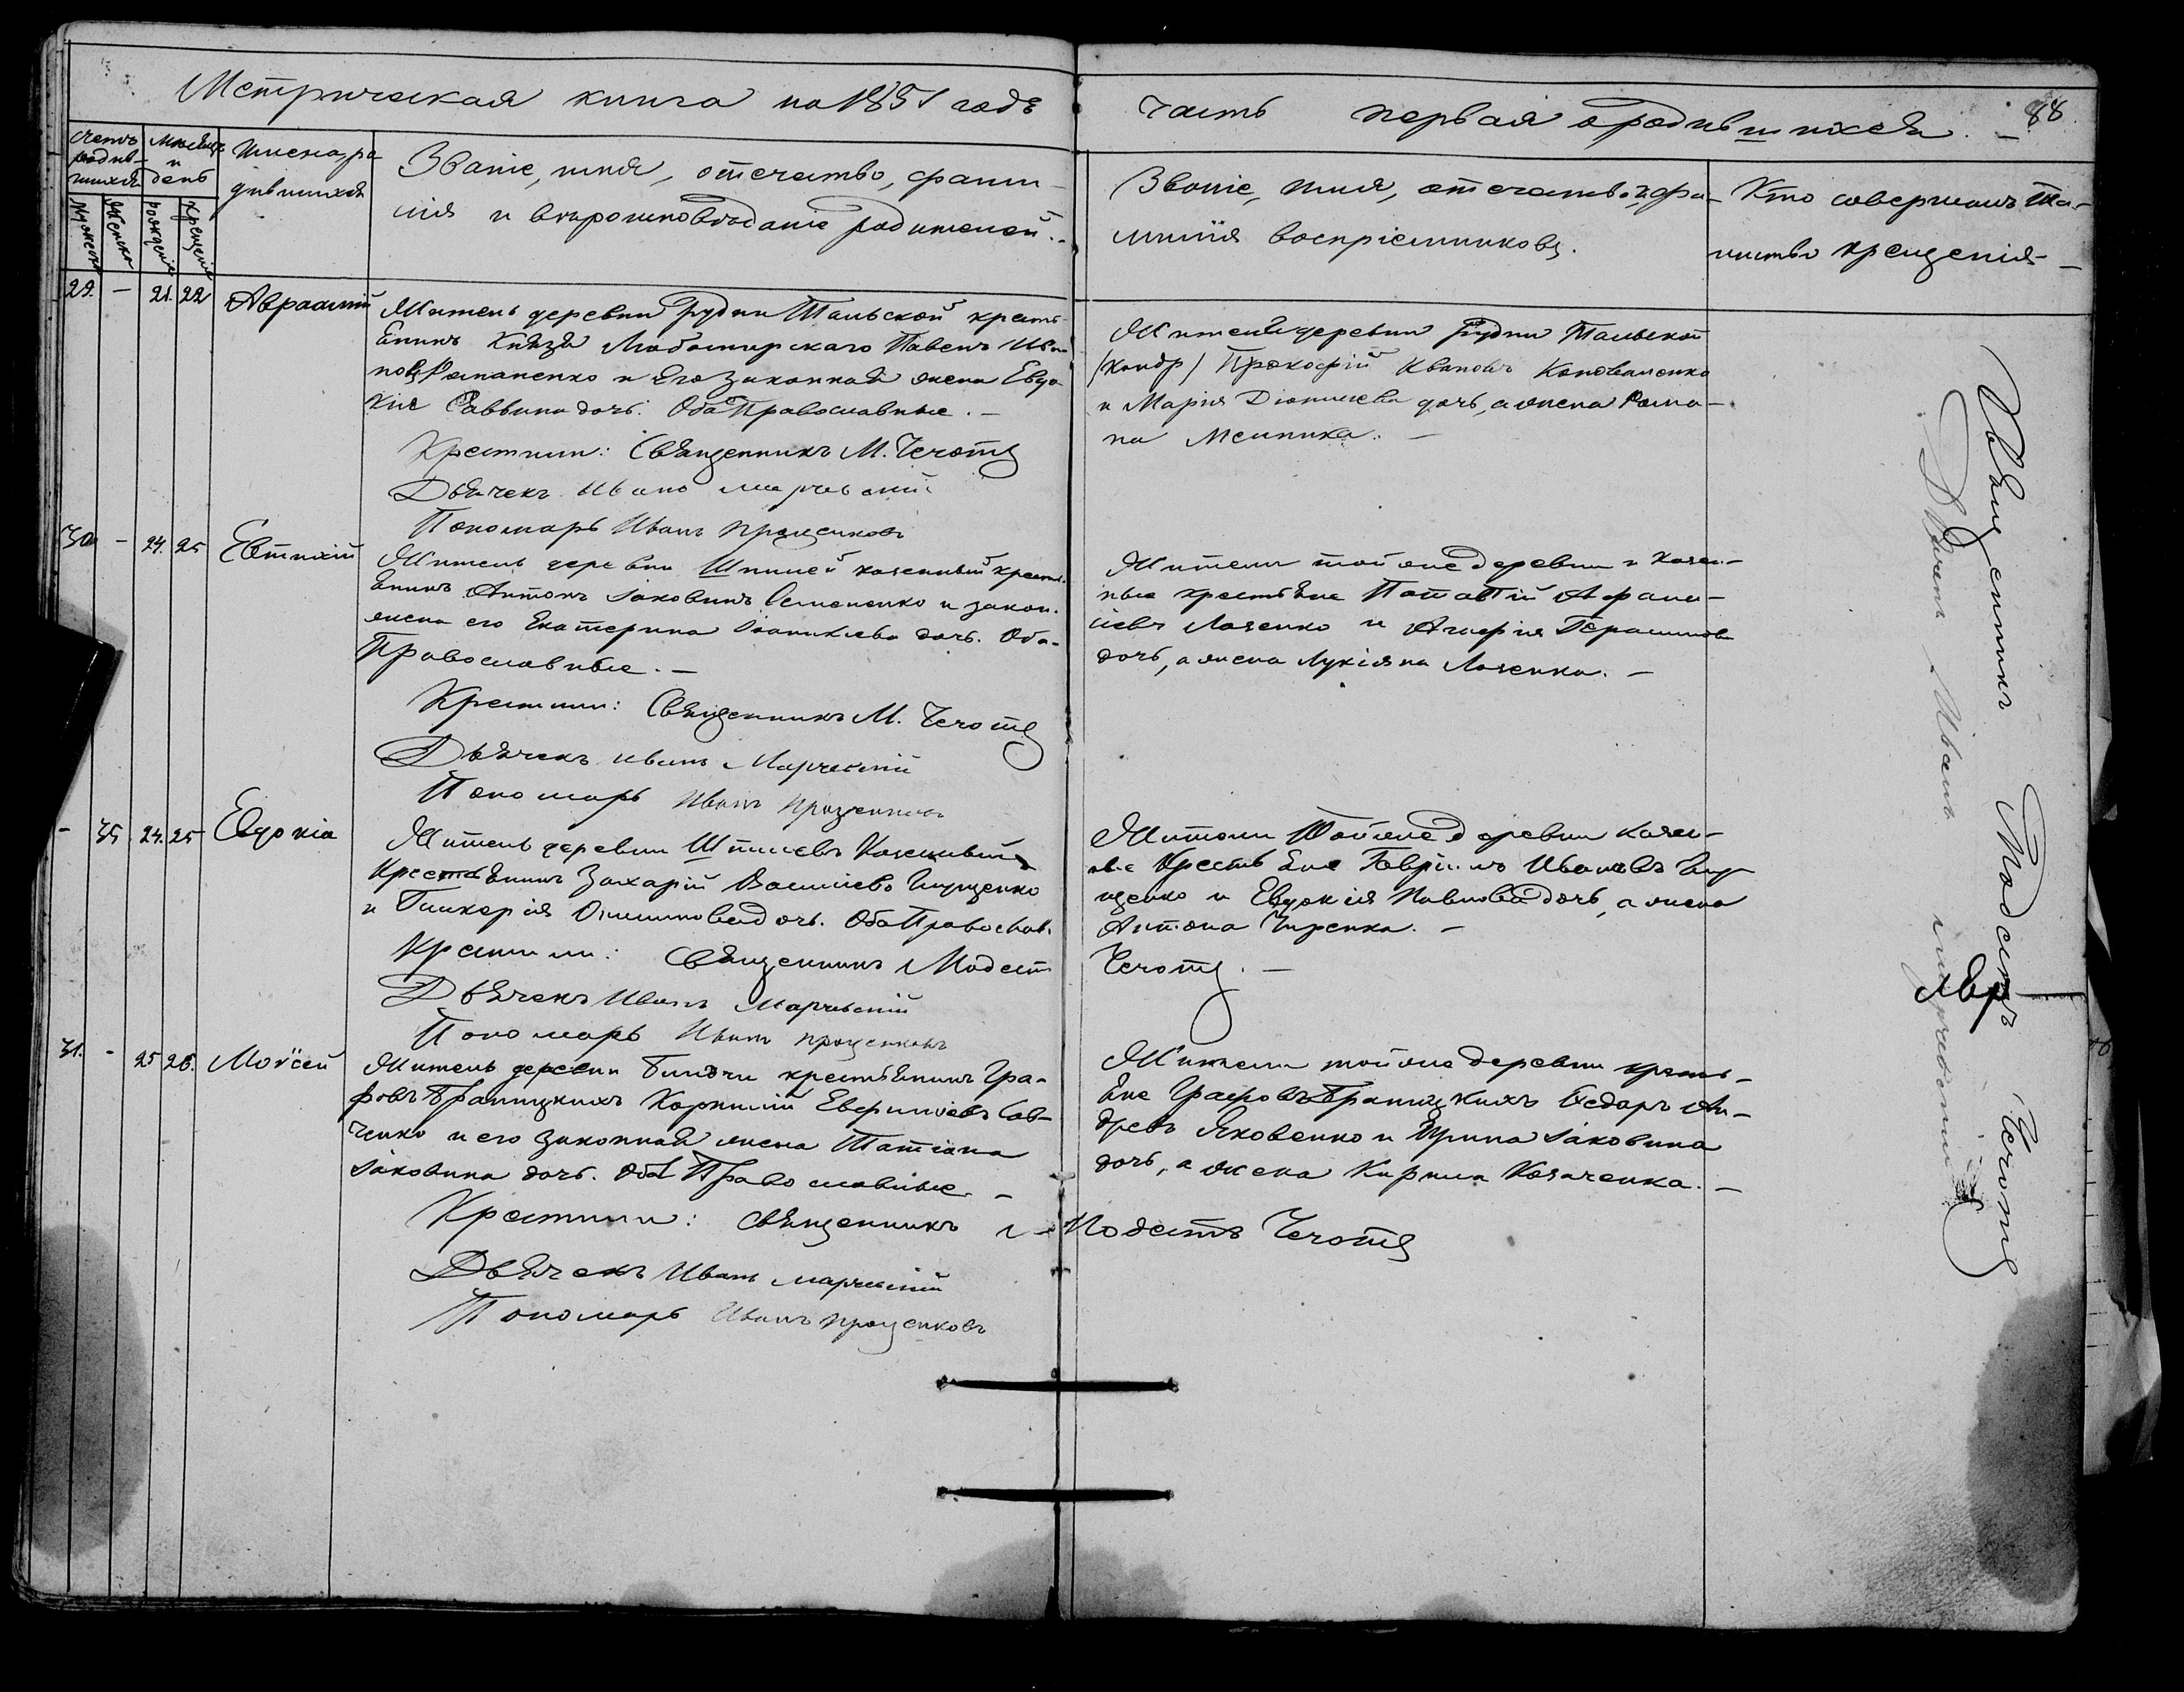 Метрическая книга на 1851 годъ
часть первая о родившихся. —
88
Счетъ родив-
шихся
Мѣсяцъ
и
день
Имена ро
дившихся
Мужеска
Женска
рожденія
крещенія
Званіе, имя, отечество, фами-
лія и вѣроисповѣданіе родителей. -
Званіе, имя, отечество, и фа-
милія воспріемниковъ.
Кто совершалъ та-
инство крещенія —
29. — 21. 22 Авраамій
Житель деревни Рудни Тальской кресть-
янинъ Князя Любомирскаго Павелъ Ива-
новъ Романенко и его законная жена Евдо-
кія Саввина дочь. Оба Православные. —
Крестили: Священникъ М. Чечотъ
Дьячекъ Иванъ Марчевскій
Пономарь Иванъ Проценковъ
Жители деревни Рудни Тальской
Прокофій Ивановъ Коноваленко
и Марія дочь, а жена Рома-
на Мельника. —
30 — 24. 25 Евтихій
Житель деревни Шпилей казенный кресть-
янинъ Антонъ Іаковинъ Семененко и закон.
жена его Екатерина Іоаникіева дочь. Оба-
Православные. —
Крестили: Священникъ М. Чечотъ
Дьячекъ Иванъ Марчевскій
Пономарь Иванъ Проценковъ
Жители той же деревни казен-
ные крестьяне Потапій Афанась-
іевъ Лазенко и Герасимова
дочь, а жена Лукіяна Лазенка. —
— 35 24. 25 Евдокіа
Житель деревни Шпилевъ Казенный
Крестьянинъ Захарій Василіевъ Ищенко
и Гликерія дочь. Оба Православ.
Крестили: Священникъ Модестъ Чечотъ. —
Дьячекъ Иванъ Марчевскій
Пономарь Иванъ Проценковъ
Жители той же деревни казен-
ые Крестьяне Гавріилъ Ивановъ
щенко и Евдокія Павлова дочь, а жена
Антона Чиренка. —
31. - 25 26. Моѵсей
Житель деревни крестьянинъ Гра-
фовъ Браницкихъ Корнилій Евфиміевъ Сав-
ченко и его законная жена Татіана
Іаковина дочь. Оба Православные. —
Крестили: Священникъ Модестъ Чечотъ
Дьячекъ Иванъ Марчевскій
Пономарь Иванъ Проценковъ
Жители той же деревни кресть-
яне Графовъ Браницкихъ Ѳедоръ Ан-
древъ Яковенко и Ирина Іаковина
дочь, а жена Кирила Казаченка. —
Священникъ Модестъ Чечотъ
Дьячекъ Иванъ Марчевскій